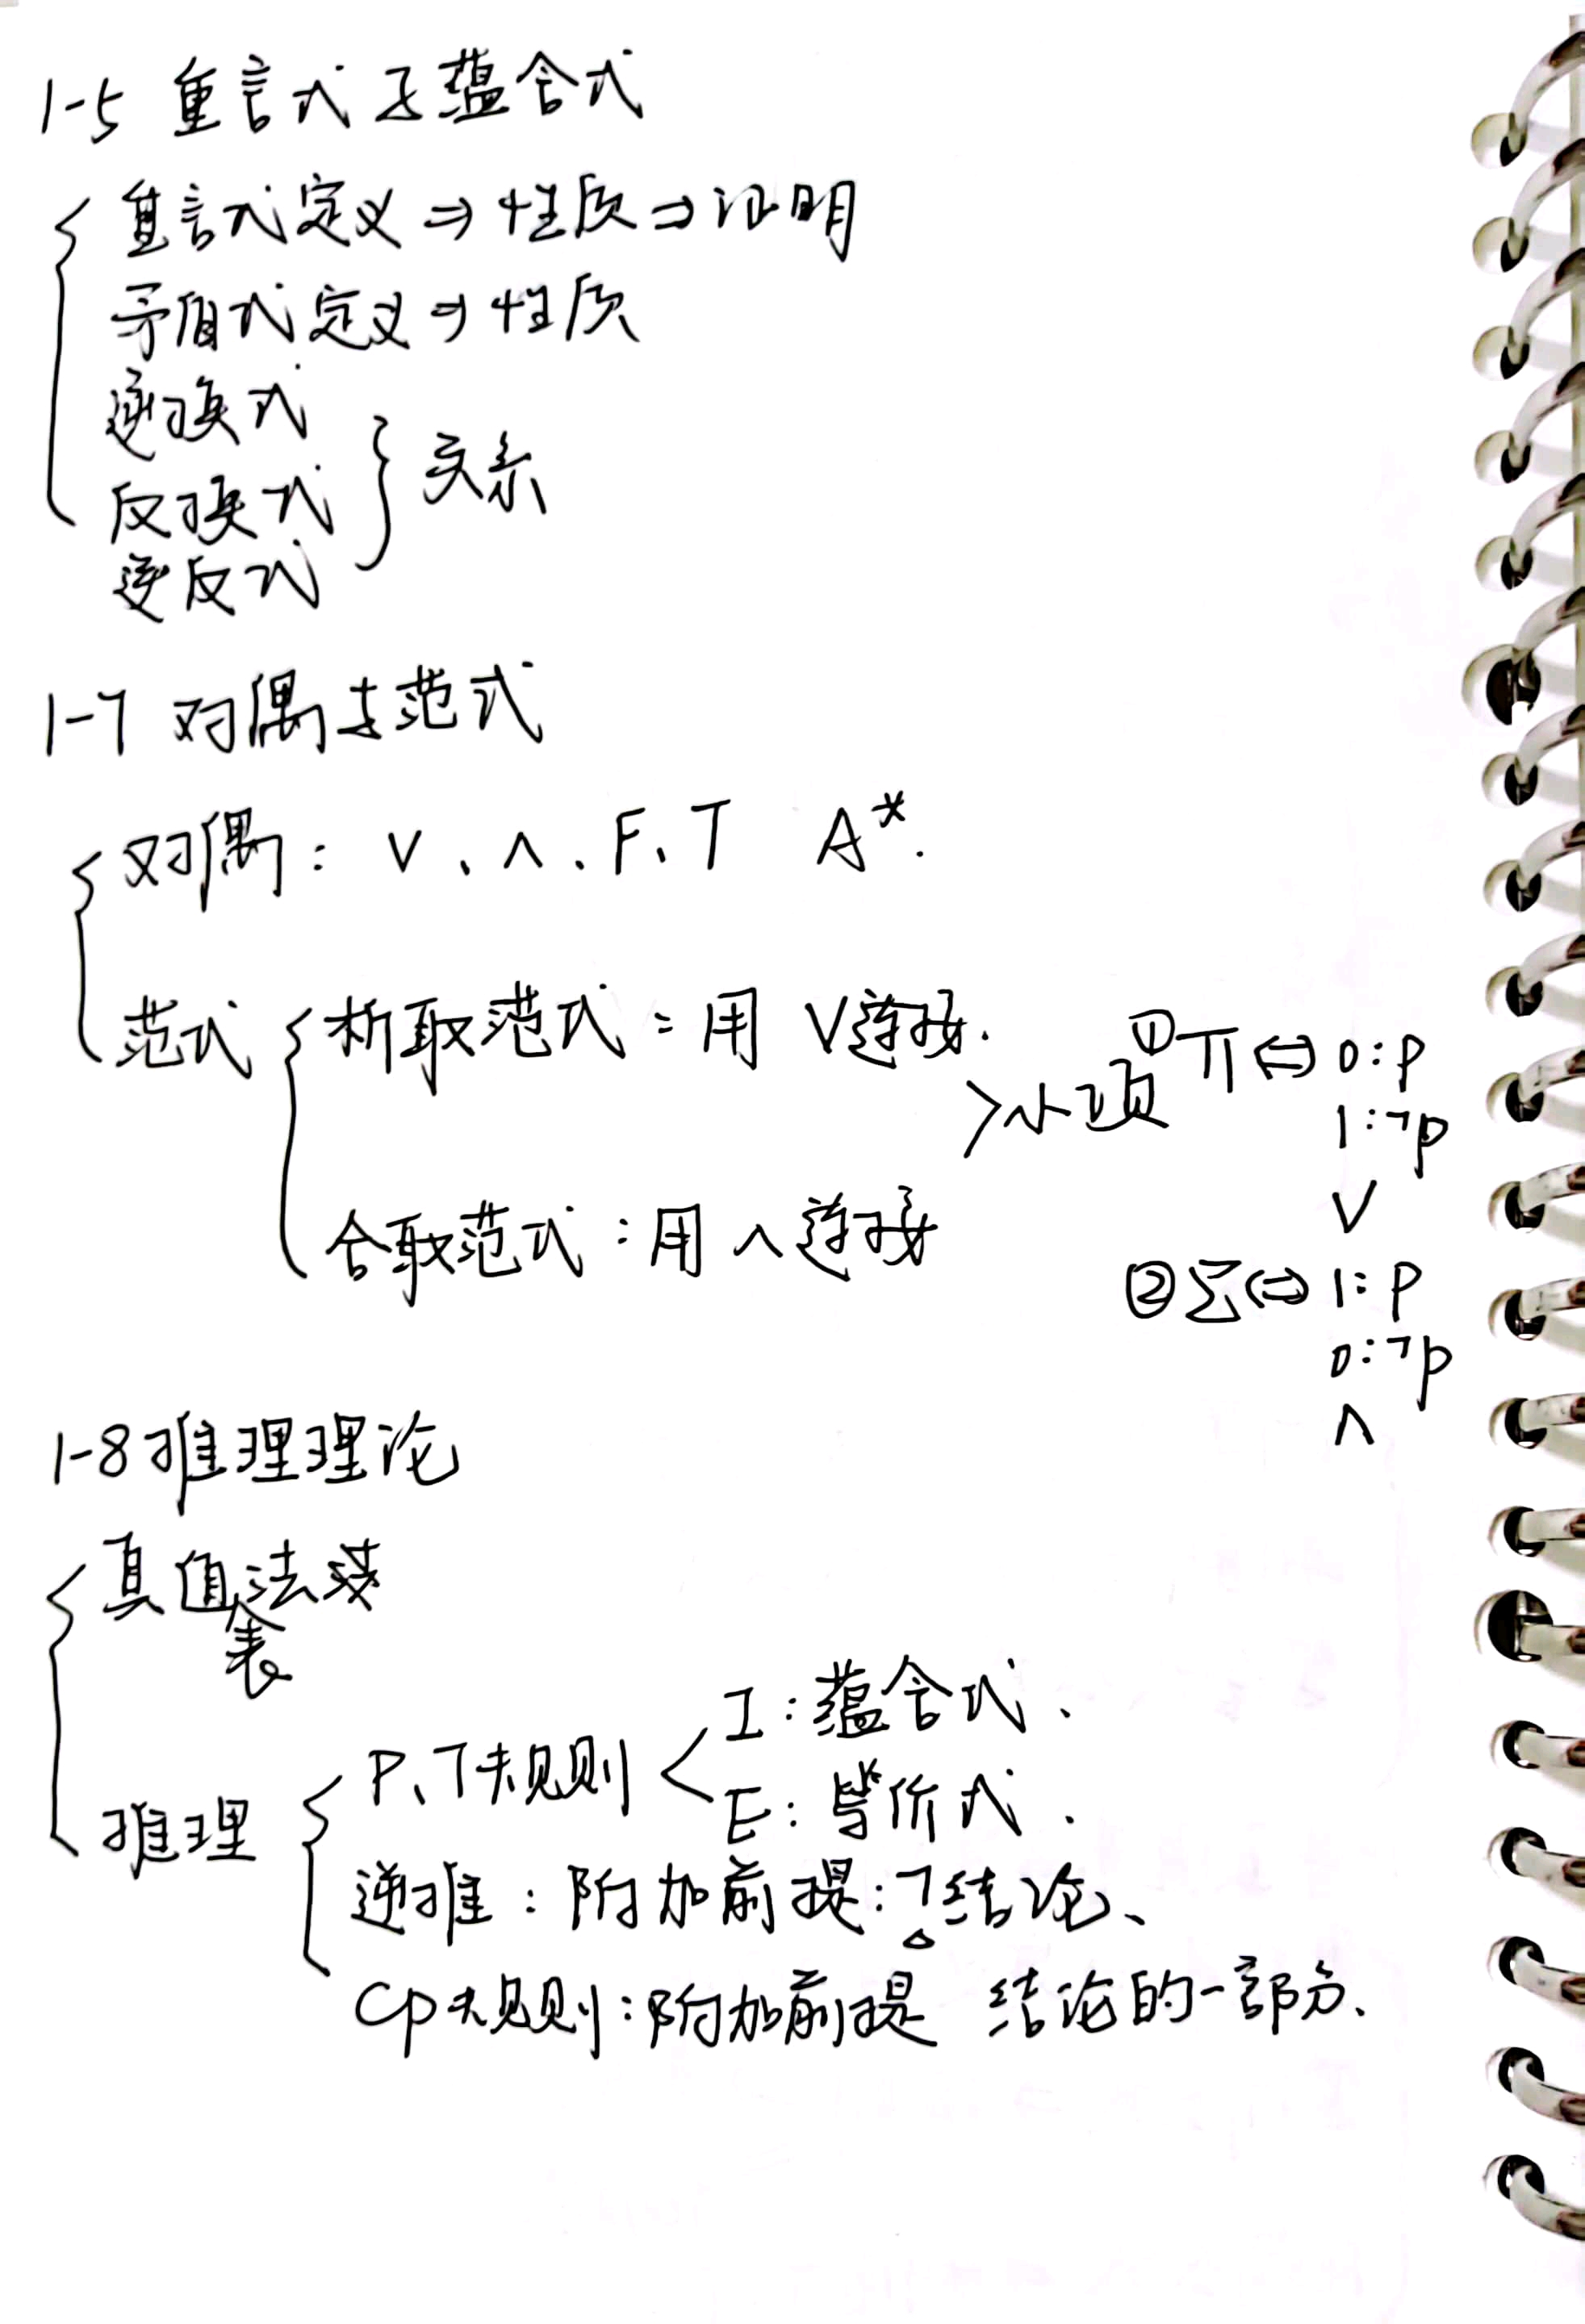 1-5 重言式与蕴含式
重言式定义⇒性质⇒证明
矛盾式定义⇒性质
逆换式
反换式 } 关系
逆反式
1-7 对偶与范式
对偶: ∨、∧、F、T A*.
范式
析取范式:用 ∨连接.
合取范式:用∧连接
>小项
①π⇔0:P
1:¬p
∨
②Σ⇔1:P
0:¬p
∧
1-8推理理论
真值法
表
推理
P、T规则
I:蕴含式、
E:等价式.
逆推:附加前提:¬结论、
CP规则:附加前提 结论的一部分、